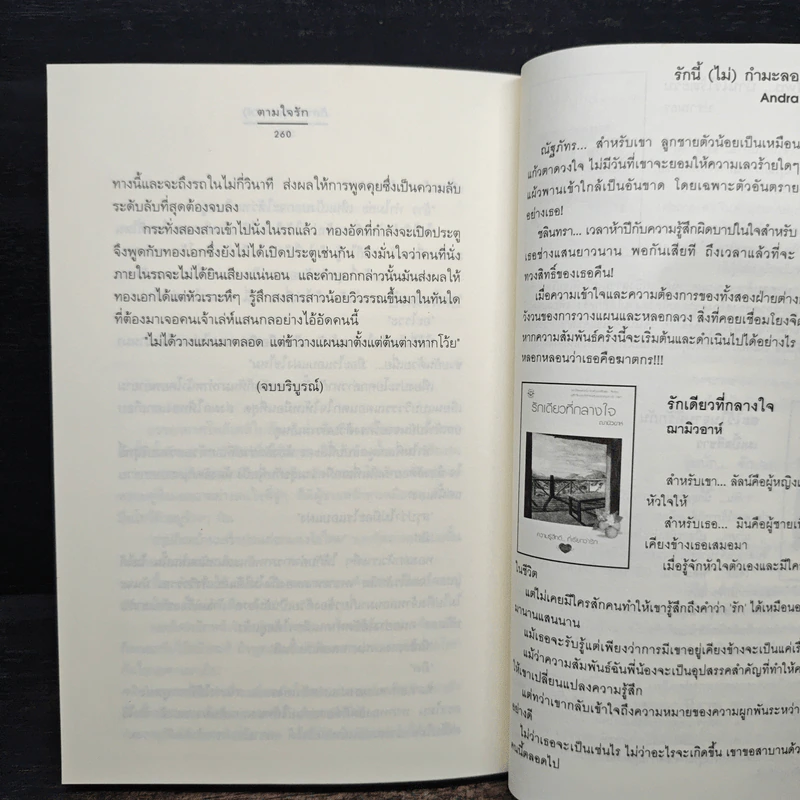 ตามใจรัก
260
ทางนี้และจะถึงรถในไม่กี่วินาที ส่งผลให้การพูดคุยซึ่งเป็นความลับ
ระดับลับที่สุดต้องจบลง
กระทั่งสองสาวเข้าไปนั่งในรถแล้ว ทองอัดที่กำลังจะเปิดประตู
จึงพูดกับทองเอกซึ่งยังไม่ได้เปิดประตูเช่นกัน จึงมั่นใจว่าคนที่นั่ง
ภายในรถจะไม่ได้ยินเสียงแน่นอน และคำบอกกล่าวนั้นมันส่งผลให้
ทองเอกได้แต่หัวเราะหึๆ รู้สึกสงสารสาวน้อยวิวรรณขึ้นมาในทันใด
ที่ต้องมาเจอคนเจ้าเล่ห์แสนกลอย่างไอ้อัดคนนี้
"ไม่ได้วางแผนมาตลอด แต่ข้าวางแผนมาตั้งแต่ต้นต่างหากโว้ย"
(จบบริบูรณ์)
รักนี้ (ไม่) กำมะลอ
Andra
ณัฐภัทร... สำหรับเขา ลูกชายตัวน้อยเป็นเหมือน
แก้วตาดวงใจ ไม่มีวันที่เขาจะยอมให้ความเลวร้ายใดๆ
แผ้วพานเข้าใกล้เป็นอันขาด โดยเฉพาะตัวอันตราย
อย่างเธอ!
ชลินทรา... เวลาห้าปีกับความรู้สึกผิดบาปในใจสำหรับ
เธอช่างแสนยาวนาน พอกันเสียที ถึงเวลาแล้วที่จะ
ทวงสิทธิ์ของเธอคืน!
เมื่อความเข้าใจและความต้องการของทั้งสองฝ่ายต่าง
วังวนของการวางแผนและหลอกลวง สิ่งที่คอยเชื่อมโยง
หากความสัมพันธ์ครั้งนี้จะเริ่มต้นและดำเนินไปได้อย่างไร
หลอกหลอนว่าเธอคือฆาตกร!!!
รักเดียวที่กลางใจ
ฌามิวอาห์
รักเดียวที่กลางใจ
ฌามิวอาห์
ความรู้สึกดี... ที่เรียกว่ารัก
สำหรับเขา... ลัลน์คือผู้หญิง
หัวใจให้
สำหรับเธอ... มินคือผู้ชาย
เคียงข้างเธอเสมอมา
เมื่อรู้จักหัวใจตัวเองและมี
ในชีวิต
แต่ไม่เคยมีใครสักคนทำให้เขารู้สึกถึงคำว่า 'รัก' ได้เหมือน
มานานแสนนาน
แม้เธอจะรับรู้แต่เพียงว่าการมีเขาอยู่เคียงข้างจะเป็นแค่
แม้ว่าความสัมพันธ์ฉันพี่น้องจะเป็นอุปสรรคสำคัญที่ทำให้
ให้เขาเปลี่ยนแปลงความรู้สึก
แต่ทว่าเขากลับเข้าใจถึงความหมายของความผูกพันระหว่าง
อย่างดี
ไม่ว่าเธอจะเป็นเช่นไร ไม่ว่าอะไรจะเกิดขึ้น เขาขอสาบาน
คนนี้ตลอดไป